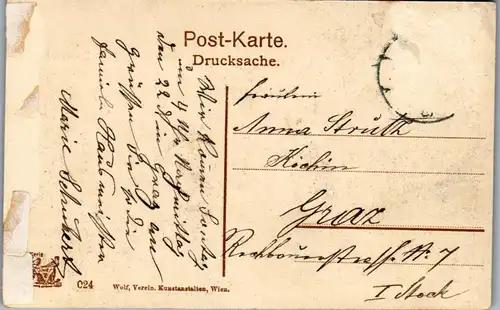 Post-Karte.
Drucksache.
Wir kommen Sonntag
um 4 Uhr Nachmittag
den 22. in Graz an
Grüßen Sie
Familie
Marie Schubert
Fräulein
Anna Struth
Köchin
Graz
Rechbauerstrasse Nr. 7
I Stock
024
Wolf, Verein. Kunstanstalten, Wien.